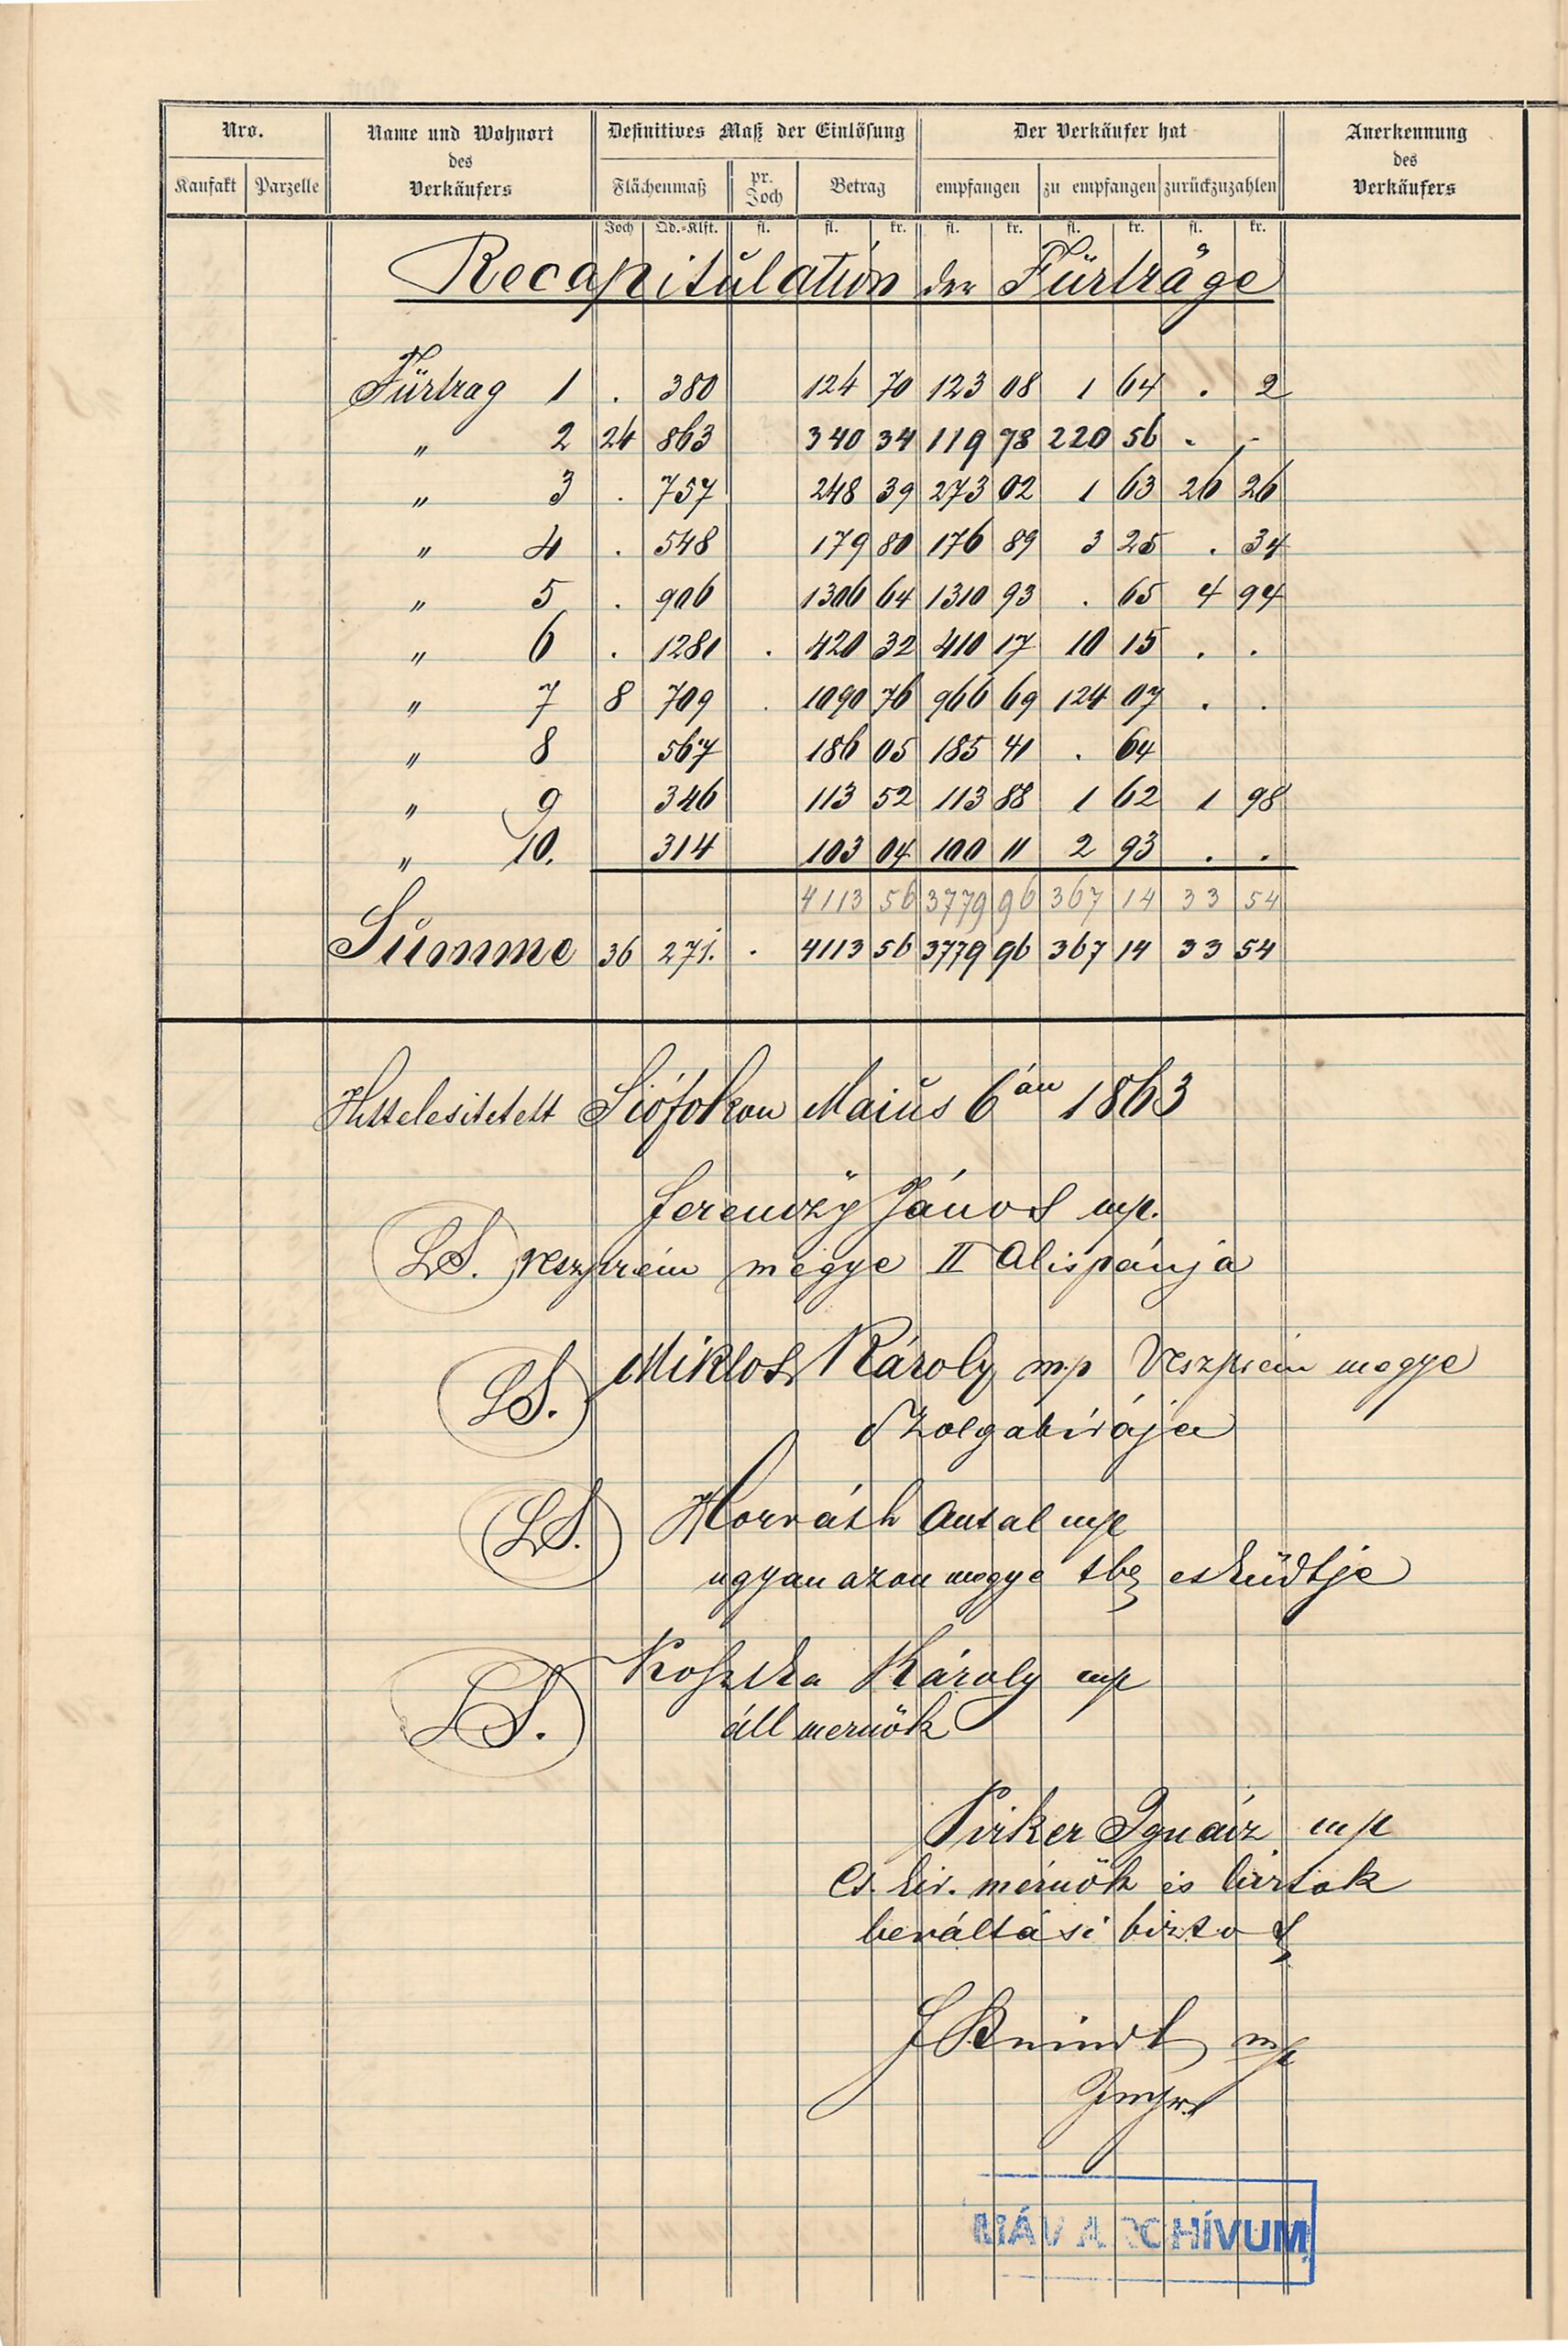 Nro.
Name und Wohnort
des
Verkäufers
Definitives Maß der Einlösung
Der Verkäufer hat
Anerkennung
des
Verkäufers
Kaufakt Parzelle
Flächenmaß pr. Joch Betrag empfangen zu empfangen zurückzuzahlen
Joch Qd.=Klft. fl. fl. kr. fl. kr. fl. kr. fl. kr.
Recapitulation der Fürträge
Fürtrag 1 . 380 124 70 123 08 1 64 . 2
„ 2 24 863 340 34 119 78 220 56 . .
„ 3 . 757 248 39 273 02 1 63 26 26
„ 4 . 548 179 80 176 89 3 25 . 34
„ 5 . 906 1306 64 1310 93 . 65 4 94
„ 6 . 1281 . 420 32 410 17 10 15 . .
„ 7 8 709 . 1090 76 966 69 124 07 . .
„ 8 567 186 05 185 41 . 64
„ 9 346 113 52 113 88 1 62 1 98
„ 10. 314 103 04 100 11 2 93 . .
4113 56 3779 96 367 14 33 54
Summe 36 271. . 4113 56 3779 96 367 14 33 54
Hittelesitetett Siófokon Maius 6án 1863
Ferenczÿ János mp.
LS. veszprém megye II Alispánja
LS. Miklos Károly mp Veszprém megye
Szolgabirája
LS. Horváth Antal mp
ugyan azon megye tbz esküdtje
LS. Koszka Károly mp
áll mernök
Pirker Ignácz mp
Cs. kir. mérnök és birtok
beváltási biztos
mp
MÁV ARCHÍVUM